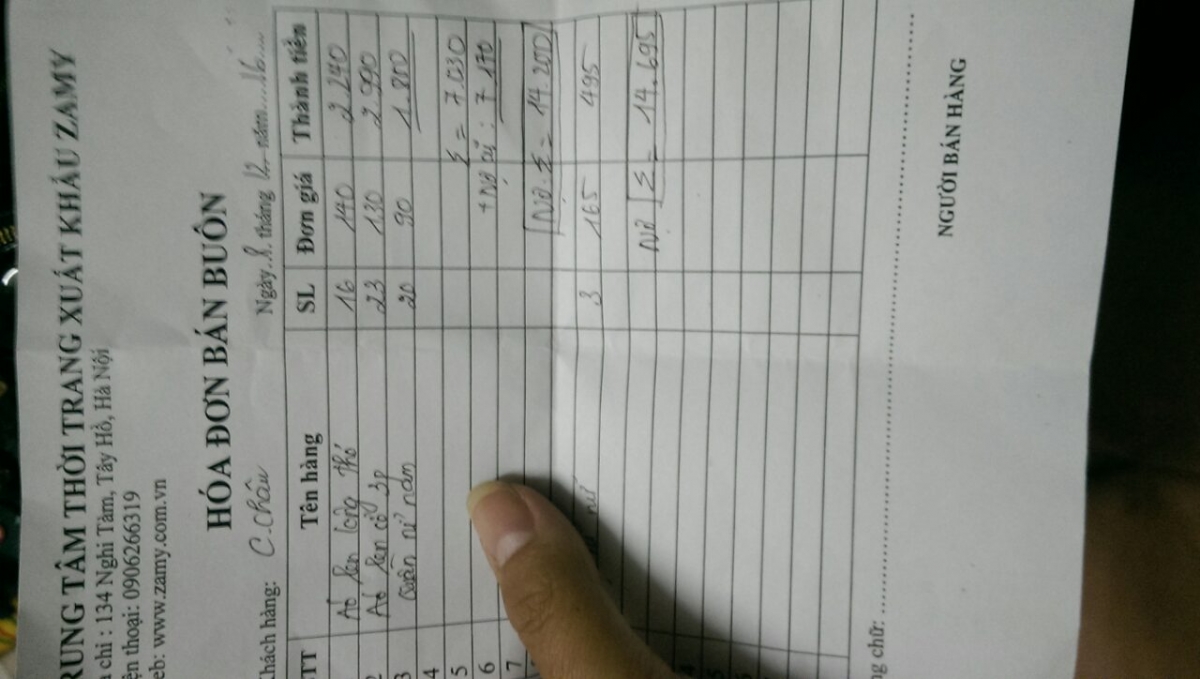 TRUNG TÂM THỜI TRANG XUẤT KHẨU ZAMY
a chỉ : 134 Nghi Tàm, Tây Hồ, Hà Nội
ện thoại: 0906266319
eb: www.zamy.com.vn
HÓA ĐƠN BÁN BUÔN
Khách hàng: C. Châu Ngày 8 tháng 12 năm 16
TT Tên hàng SL Đơn giá Thành tiền
Áo len lông thỏ 16 140 2.240
2 Áo len cổ 3p 23 130 2.990
3 Quần nỉ nám 20 90 1.800
4
5 Σ = 7.030
6 + Nợ cũ : 7 170
7
Nợ Σ = 14.200
nữ 3 165 495
Nợ Σ = 14.695
ng chữ:
NGƯỜI BÁN HÀNG